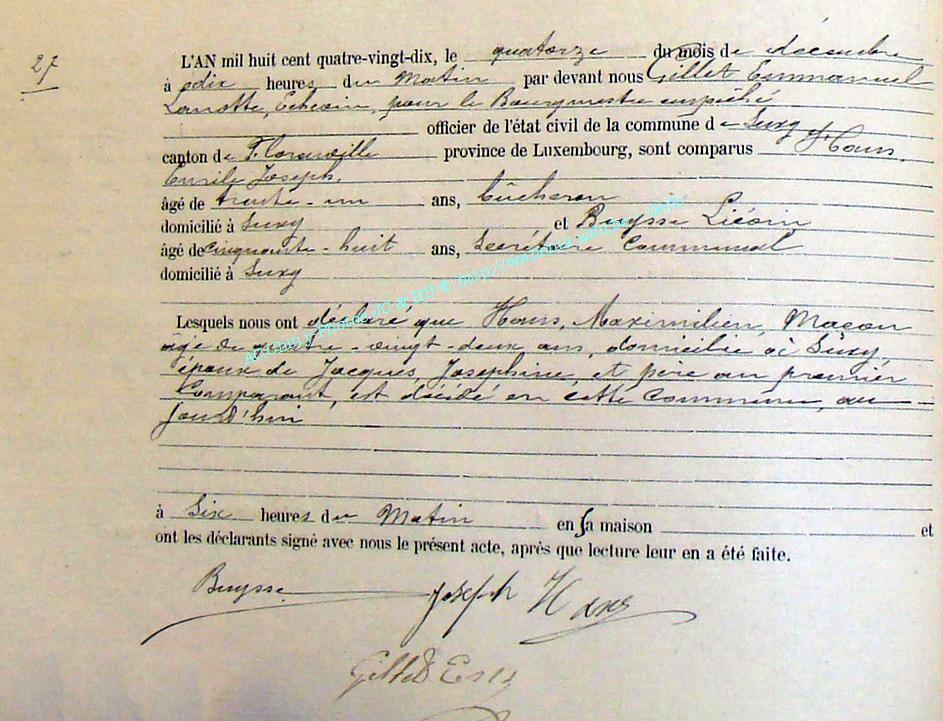 27
L'AN mil huit cent quatre-vingt-dix, le quatorze du mois de décembre
à dix heures du Matin par devant nous Gillet Emmanuel
Lanotte, Echevin, pour le Bourgmestre empêché
officier de l'état civil de la commune de Suxy
canton de Florenville province de Luxembourg, sont comparus Hans,
Emile Joseph,
âgé de trente-un ans, bûcheron
domicilié à Suxy et Buysse Liévin
âgé de cinquante-huit ans, Secrétaire Communal
domicilié à Suxy
Lesquels nous ont déclaré que Hans, Maximilien, Maçon
âgé de quatre-vingt-deux ans, domicilié à Suxy,
époux de Jacques, Josephine, et père au premier
Comparant, est décédé en cette Commune, au
jourd'hui
à Six heures du Matin en sa maison et
ont les déclarants signé avec nous le présent acte, après que lecture leur en a été faite.
Buysse Joseph Hans